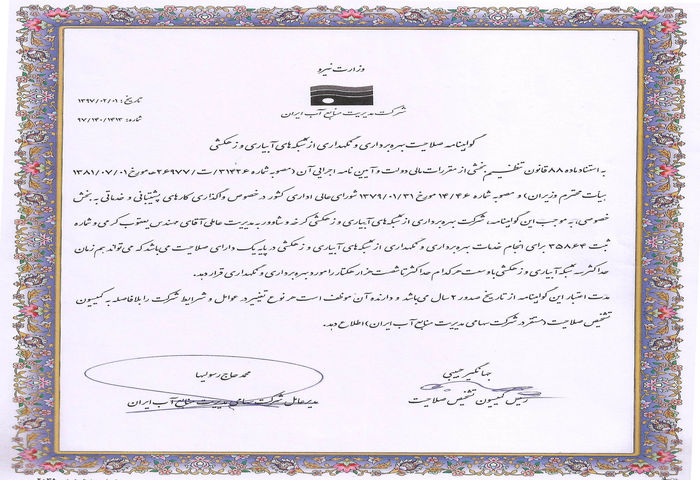 وزارت نیرو
شرکت مدیریت منابع آب ایران
تاریخ: ۱۳۹۷/۰۲/۰۱
شماره: ۹۷/۱۳۰/۱۴۱۳
گواهینامه صلاحیت بهره‌برداری و نگهداری از شبکه‌های آبیاری و زهکشی
به استناد ماده ۸۸ قانون تنظیم بخشی از مقررات مالی دولت و آیین نامه اجرایی آن (مصوبه شماره ۳۱۴۲۶/ت/۲۶۹۷۷ه مورخ ۱۳۸۱/۰۷/۰۱
هیات محترم وزیران) و مصوبه شماره ۱۴/۴۶ مورخ ۱۳۷۹/۰۱/۳۱ شورای عالی اداری کشور در خصوص واگذاری کارهای پشتیبانی و خدماتی به بخش
خصوصی، به موجب این گواهینامه، شرکت بهره‌برداری از شبکه‌های آبیاری و زهکشی کرخه و شاوور به مدیریت عاملی آقای مهندس یعقوب کرمی و شماره
ثبت ۳۵۸۶۴ برای انجام خدمات بهره‌برداری و نگهداری از شبکه‌های آبیاری و زهکشی در پایه یک دارای صلاحیت می‌باشد که می‌تواند هم زمان
حداکثر شبکه آبیاری و زهکشی با وسعت هر کدام حداکثر تا شصت هزار هکتار را مورد بهره‌برداری و نگهداری قرار دهد.
مدت اعتبار این گواهینامه از تاریخ صدور ۲ سال می‌باشد و دارنده آن موظف است هر نوع تغییر در عوامل و شرایط شرکت را بلافاصله به کمیسیون
تشخیص صلاحیت (مستقر در شرکت سهامی مدیریت منابع آب ایران) اطلاع دهد.
جهانگیر حبیبی
رئیس کمیسیون تشخیص صلاحیت
محمد حاج رسولیها
مدیرعامل شرکت سهامی مدیریت منابع آب ایران